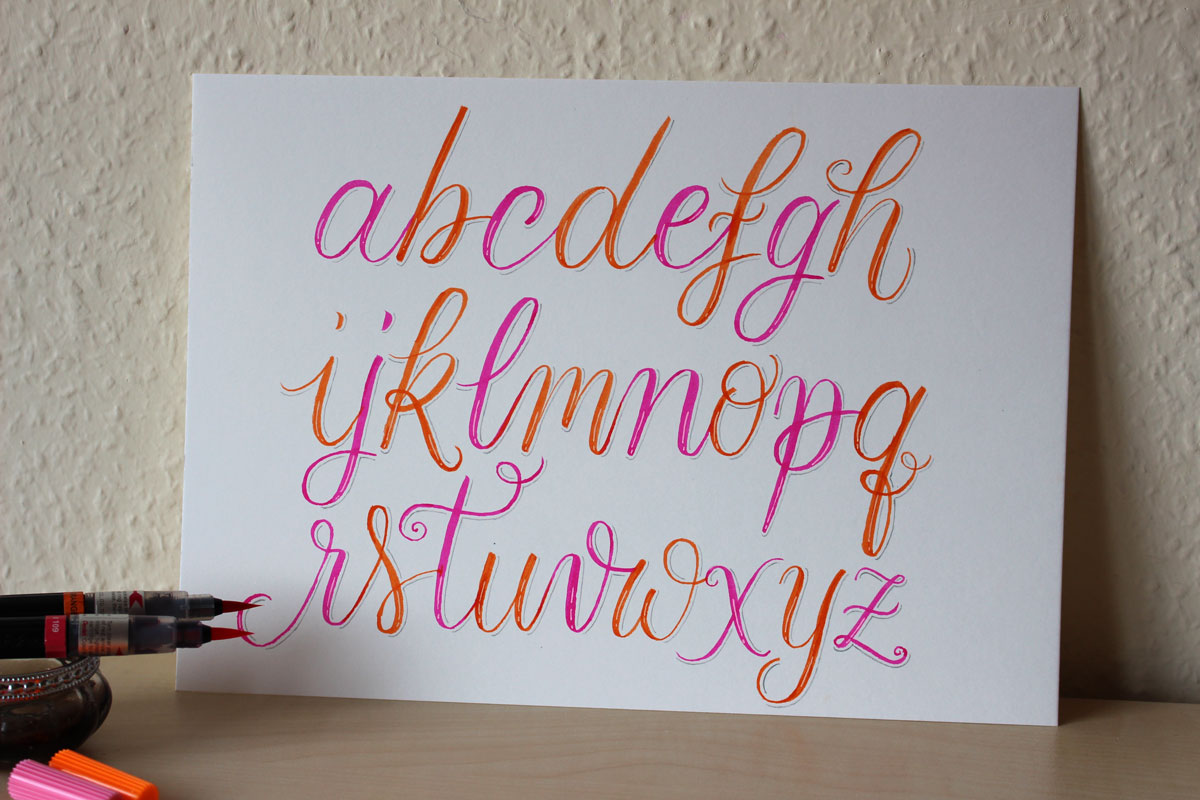 abcdefgh
ijklmnopq
rstuvwxyz
109